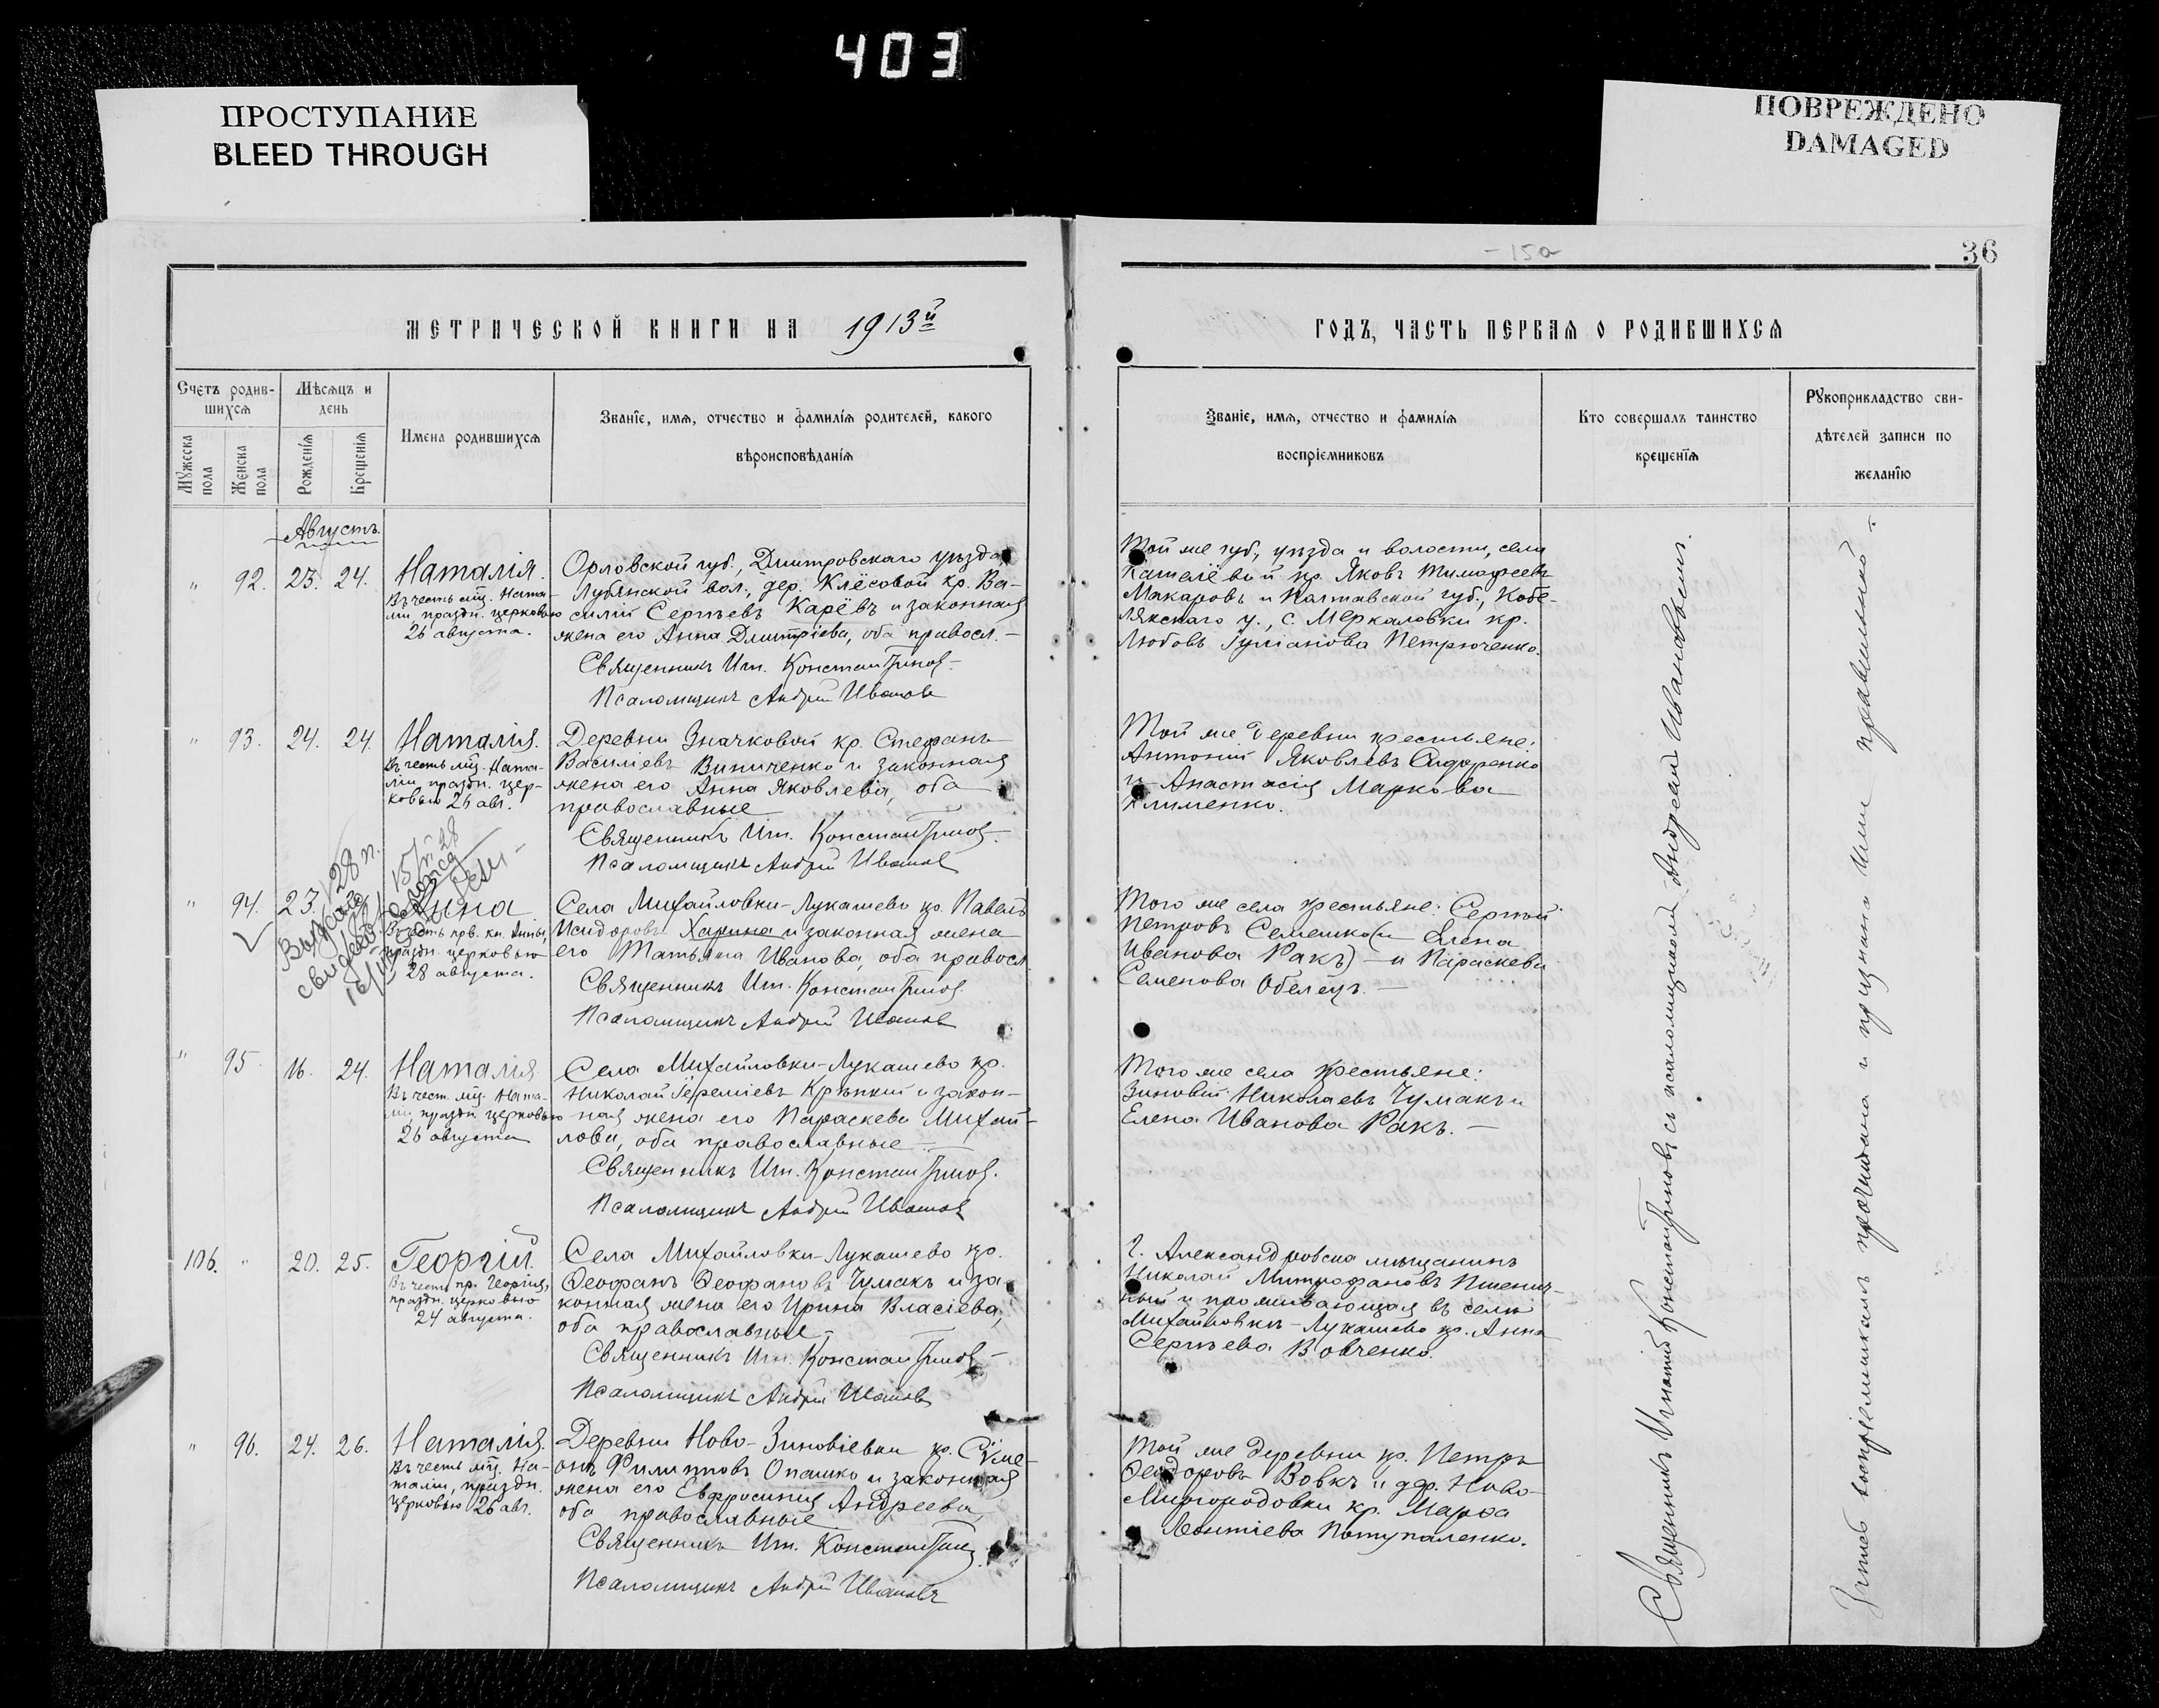 403
ПРОСТУПАНИЕ
BLEED THROUGH
ПОВРЕЖДЕНО
DAMAGED
-15а
36
МЕТРИЧЕСКОЙ КНИГИ НА 1913й
ГОДЪ, ЧАСТЬ ПЕРВАЯ О РОДИВШИХСЯ
Счетъ родив-
шихся
Мѣсяцъ и
день
Мужеска
пола
Женска
пола
Рожденія
Крещенія
Имена родившихся
Званіе, имя, отчество и фамилія родителей, какого
вѣроисповѣданія
Званіе, имя, отчество и фамилія
воспріемниковъ
Кто совершалъ таинство
крещенія
Рукоприкладство сви-
дѣтелей записи по
желанію
Августъ.
" 92. 23. 24.
Наталія.
Въ честь мц. Ната-
ліи, праздн. церковью
26 августа.
Орловской губ., Дмитровскаго уѣзда,
Лубянской вол., дер. Клёсовой кр. Ва-
силій Сергѣевъ Карёвъ и законная
жена его Анна Дмитріева, оба правосл. —
Священникъ Игн. Константиновъ
Псаломщикъ Андрей Ивановъ
Той же губ., уѣзда и волости, села
кр. Яковъ Тимофеевъ
Макаровъ и Полтавской губ., Кобе-
лякскаго у., с. Меркаловки кр.
Любовь Іуліанова Петрюченко.
" 93. 24. 24.
Наталія.
Въ честь мц. Ната-
ліи, праздн. цер-
ковью 26 авг.
Деревни Значковой кр. Стефанъ
Василіевъ Виниченко и законная
жена его Анна Яковлева, оба
православные
Священникъ Игн. Константиновъ
Псаломщикъ Андрей Ивановъ
Той же деревни крестьяне:
Антоній Яковлевъ Сидоренко
и Анастасія Маркова
Клименко.
" 94. 23.
Анна
Въ честь прв. кн. Анны,
праздн. церковью
28 августа.
Выдано
Села Михайловки-Лукашево кр. Павелъ
Исидоровъ Харина и законная жена
его Татьяна Иванова, оба правосл.
Священникъ Игн. Константиновъ
Псаломщикъ Андрей Ивановъ
Того же села крестьяне: Сергій
Петровъ Семешко (и Елена
Иванова Ракъ) — и Параскева
Семенова Обелецъ. —
" 95. 16. 24.
Наталія
Въ чест. мц. Ната-
ліи, праздн. церковью
26 августа
Села Михайловки-Лукашево кр.
Николай Іереміевъ Крѣпкій и закон-
ная жена его Параскева Михай-
лова, оба православные —
Священникъ Игн. Константиновъ.
Псаломщикъ Андрей Ивановъ
Того же села крестьяне:
Зиновій Николаевъ Чумакъ и
Елена Иванова Ракъ. —
106. " 20. 25.
Георгій.
Въ честь пр. Георгія,
праздн. церковью
24 августа.
Села Михайловки-Лукашево кр.
Ѳеофанъ Ѳеофановъ Чумакъ и за-
конная жена его Ирина Власіева,
оба православные —
Священникъ Игн. Константиновъ
Псаломщикъ Андрей Ивановъ
Г. Александровска мѣщанинъ
Николай Митрофановъ Пшенич-
ный и проживающая въ селѣ
Михайловкѣ-Лукашево кр. Анна
Сергѣева Вовченко.
" 96. 24. 26.
Наталія.
Въ честь мц. На-
таліи, праздн.
церковью 26 авг.
Деревни Ново-Зиновіевки кр. Сѵме-
онъ Филипповъ Опашко и законная
жена его Евфросинія Андреева,
оба православные
Священникъ Игн. Константиновъ
Псаломщикъ Андрей Ивановъ
Той же деревни кр. Петръ
Ѳеодоровъ Вовкъ и дер. Ново-
Миргородовки кр. Марѳа
Леонтіева Потупаленко.
Священникъ Игнатій Константиновъ съ псаломщикомъ Андреемъ Ивановымъ.
воспріемникамъ прочитана и признана ими правильною —